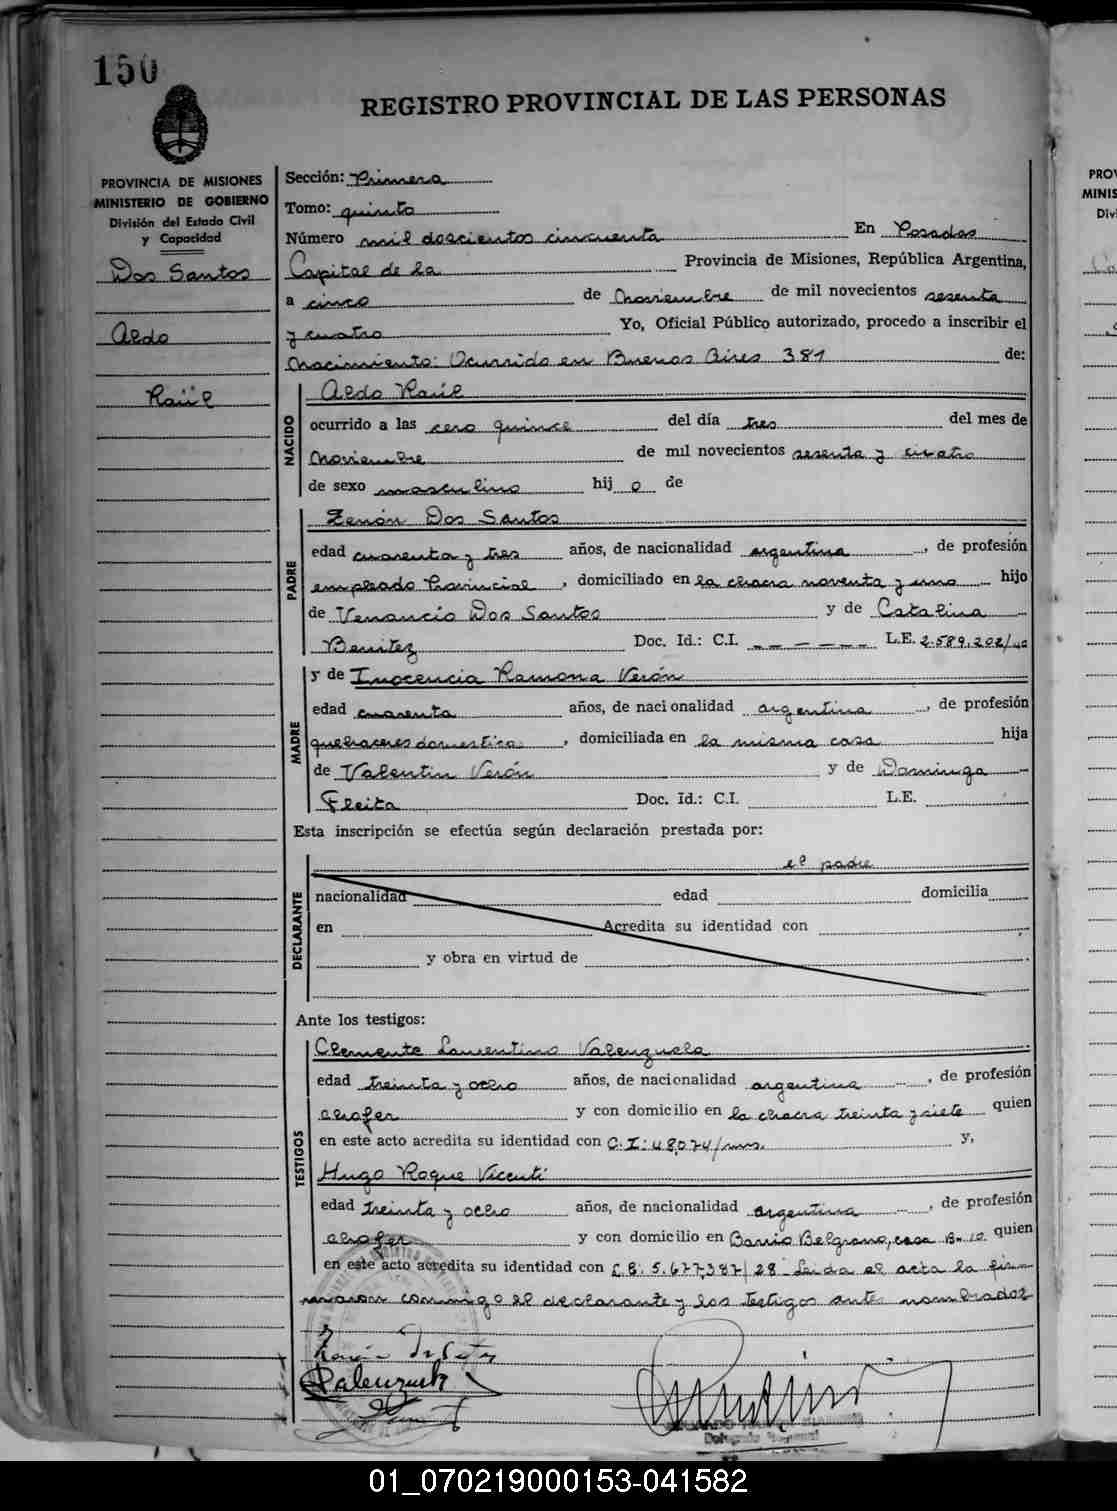 150
REGISTRO PROVINCIAL DE LAS PERSONAS
PROVINCIA DE MISIONES
MINISTERIO DE GOBIERNO
División del Estado Civil
y Capacidad
Dos Santos
Aldo
Raúl
Sección: Primera
Tomo: quinto
Número mil doscientos cincuenta En Posadas
Capital de la Provincia de Misiones, República Argentina,
a cinco de Noviembre de mil novecientos sesenta
y cuatro Yo, Oficial Público autorizado, procedo a inscribir el
Nacimiento: Ocurrido en Buenos Aires 381 de:
NACIDO
Aldo Raúl
ocurrido a las cero quince del día tres del mes de
Noviembre de mil novecientos sesenta y cuatro
de sexo masculino hij o de
PADRE
Zenón Dos Santos
edad cuarenta y tres años, de nacionalidad argentina, de profesión
empleado Provincial, domiciliado en la chacra noventa y uno hijo
de Venancio Dos Santos y de Catalina
Benitez Doc. Id.: C.I. - - - - - - L.E. 2.589.202/40
MADRE
y de Inocencia Ramona Verón
edad cuarenta años, de nacionalidad argentina, de profesión
quehaceres domestica, domiciliada en la misma casa hija
de Valentin Verón y de Dominga
Fleita Doc. Id.: C.I. L.E.
Esta inscripción se efectúa según declaración prestada por:
DECLARANTE
el padre
nacionalidad edad domicilia
en Acredita su identidad con
y obra en virtud de
Ante los testigos:
TESTIGOS
Clemente Laurentino Valenzuela
edad treinta y ocho años, de nacionalidad argentina, de profesión
chofer y con domicilio en la chacra treinta y siete quien
en este acto acredita su identidad con C.I: 48.074/mns. y,
Hugo Roque Vicenti
edad treinta y ocho años, de nacionalidad argentina, de profesión
chofer y con domicilio en Barrio Belgrano, casa B-10 quien
en este acto acredita su identidad con L.E: 5.677.387/28 Leida el acta la fir-
maron conmigo el declarante y los testigos antes nombrados
Valenzuela
PROV
MINIS
Divi
01_070219000153-041582